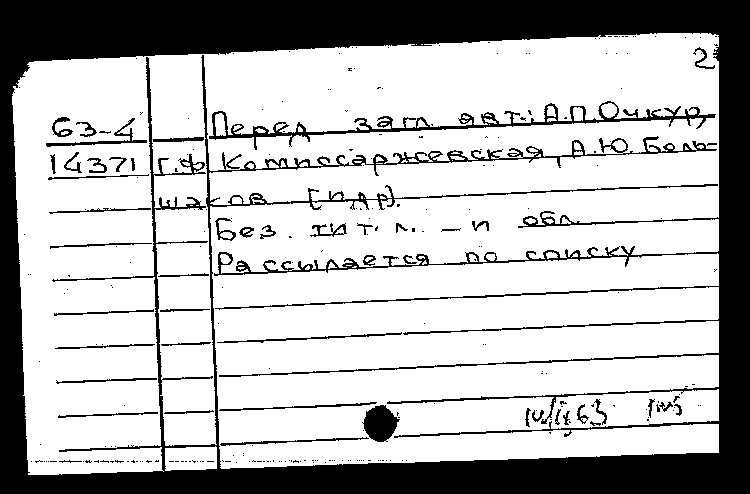 2
63-4 Перед загл. авт.: А.П. Очкур,
14371 Г.Ф. Комиссаржевская, А.Ю. Боль-
шаков [и др].
Без. тит. л. – и обл.
Рассылается по списку